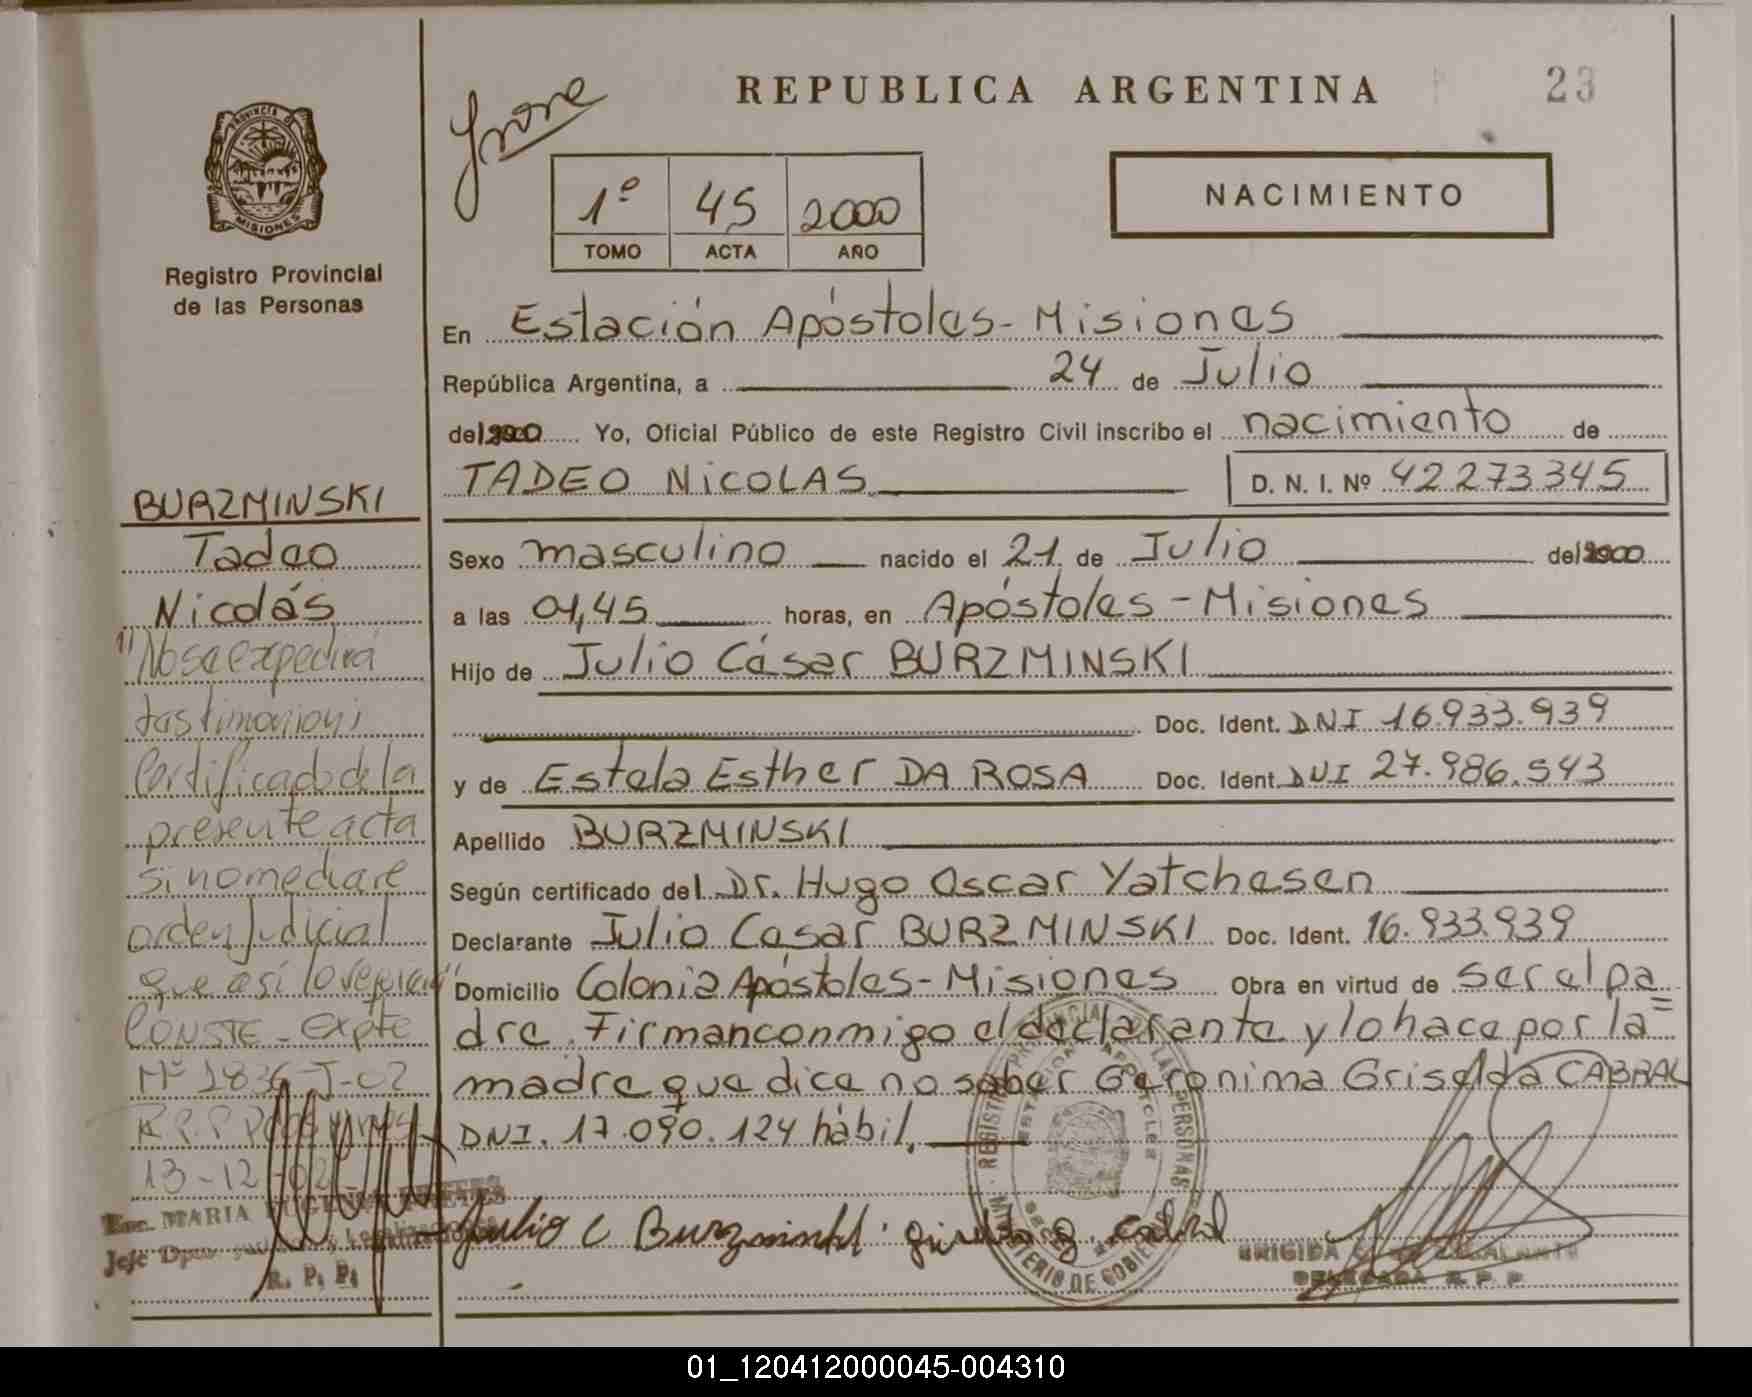 REPUBLICA ARGENTINA
23
PROVINCIA D
MISIONES
Registro Provincial
de las Personas
1º 45 2000
TOMO ACTA AÑO
NACIMIENTO
En Estación Apóstoles - Misiones
República Argentina, a 24 de Julio
del 2000 Yo, Oficial Público de este Registro Civil inscribo el nacimiento de
TADEO NICOLAS D. N. I. Nº 42273345
Sexo masculino nacido el 21 de Julio del 2000
a las 01,45 horas, en Apóstoles - Misiones
Hijo de Julio César BURZMINSKI
Doc. Ident. DNI 16.933.939
y de Estela Esther DA ROSA Doc. Ident. DNI 27.986.543
Apellido BURZMINSKI
Según certificado del Dr. Hugo Oscar Yatchesen
Declarante Julio Cesar BURZMINSKI Doc. Ident. 16.933.939
Domicilio Colonia Apóstoles - Misiones Obra en virtud de ser el pa=
dre. Firman conmigo el declarante y lo hace por la
madre que dice no saber Geronima Griselda CABRAL
DNI. 17.090.124 hábil.
Julio C Burzminski
BRIGIDA
DELEGADA R. P. P.
BURZMINSKI
Tadeo
Nicolás
1) "No se expedirá
testimonio ni
Certificado de la
presente acta
si no mediare
orden Judicial
que así lo requiera"
CONSTE - Expte
Nº 1836-J-02
R.P.P. Posadas
13-12-02
Esc. MARIA EUGENIA
Jefe Dpto
R. P. P.
01_120412000045-004310